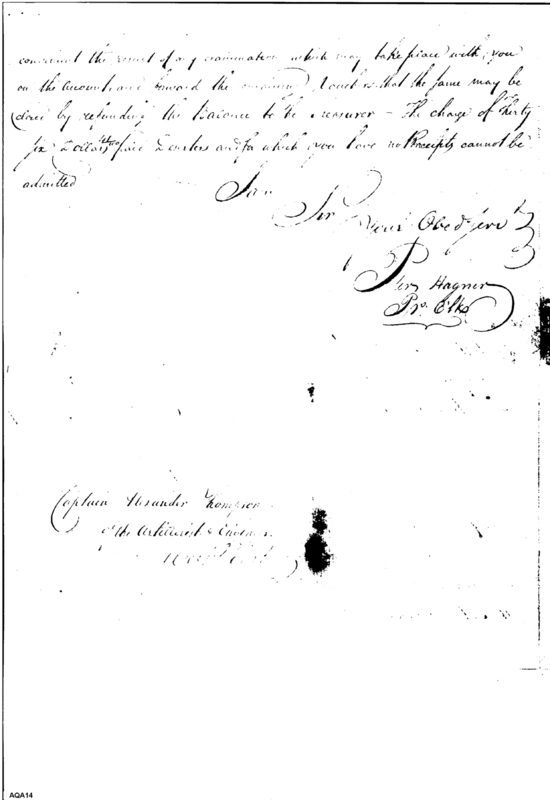 the result of any examination which may take place with you
on the account, and forward the Vouchers that the same may be
closed by refunding the Balance to the Treasurer – The charge of Thirty
six Dollars paid and for which you have no Receipts cannot be
admitted
I am
Sir
your Obedt Servt
Peter Hagner
Pr. Clk
Captain Alexander Thompson
of the Artillerist &
AQA14